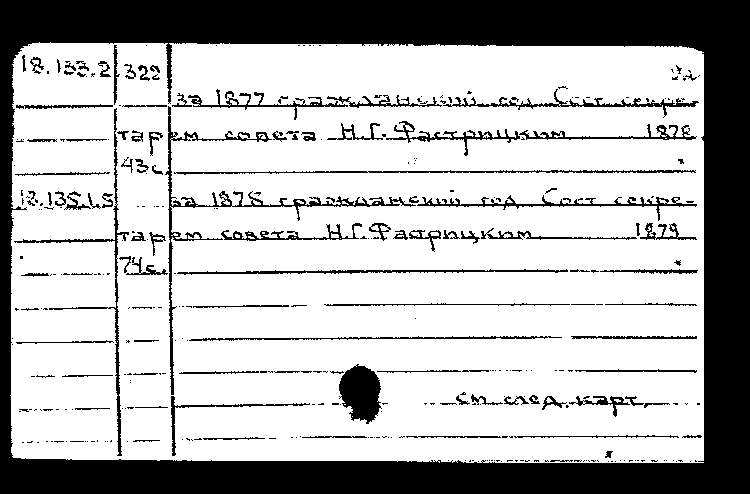 18.133.2.322
за 1877 гражданский год Сост секре-
тарем совета Н.Г. Фастрицким 1878.
43с.
18.135.1.5 за 1878 гражданский год Сост секре-
тарем совета Н.Г. Фастрицким 1879
74с.
см след. карт.